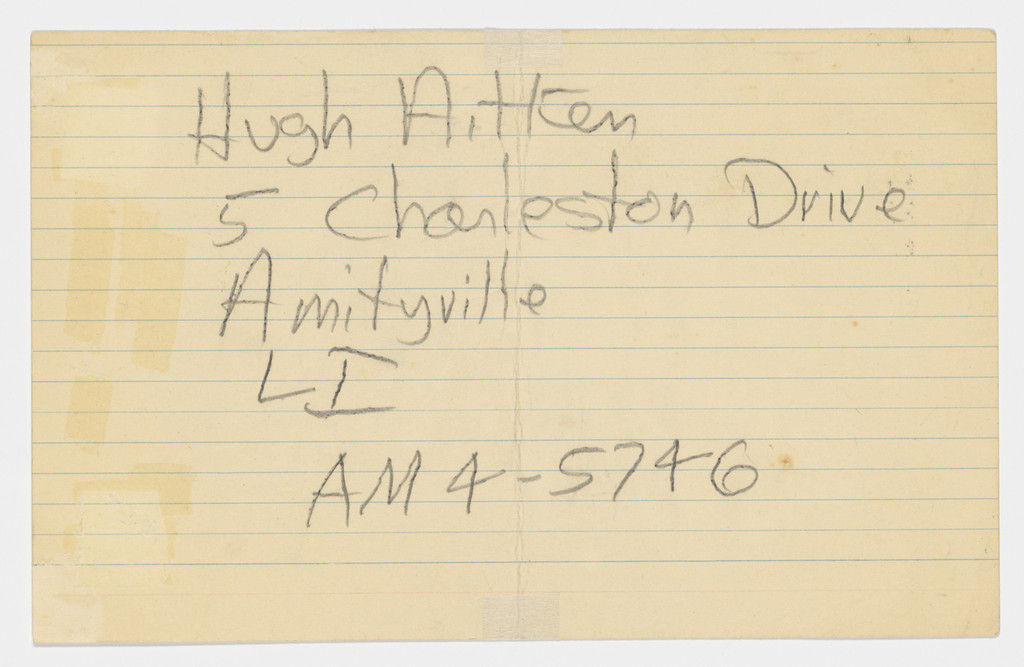 Hugh Aitken
5 Charleston Drive
Amityville
LI
AM4-5746